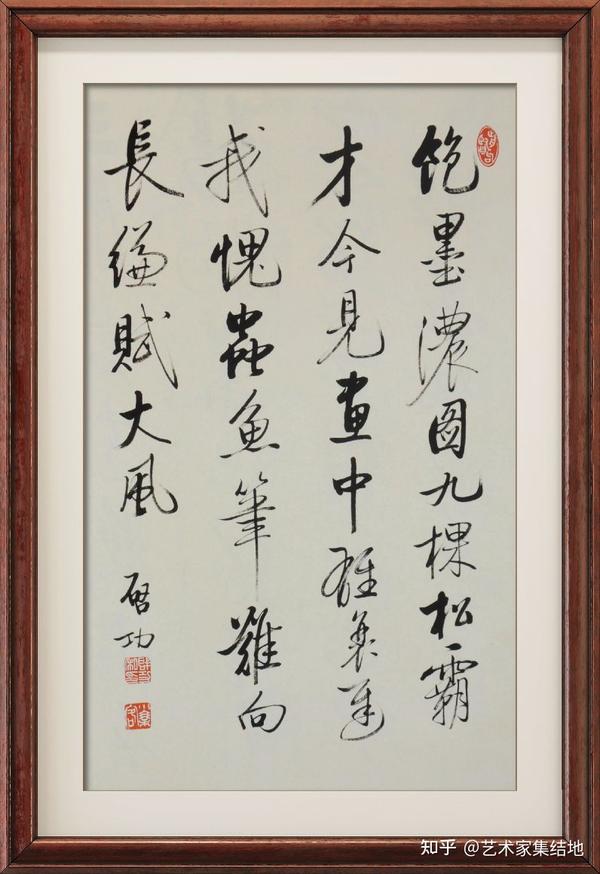 飽墨濃圖九棵松霸
才今見畫中雄衰遲
我愧蟲魚筆難向
長縑賦大風
啓功
知乎 @艺术家集结地